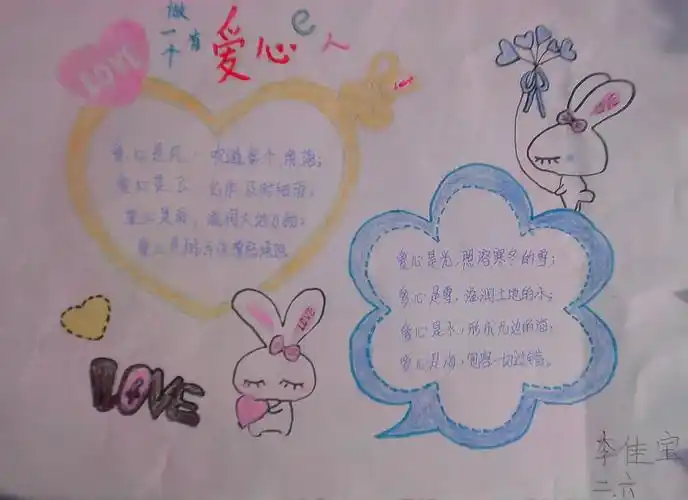 做一个有爱心e人
LOVE
爱心是风，吹遍每个角落；
爱心是云，化作及时细雨；
爱心是雨，滋润大地万物；
爱心是
LOVE
爱心是光，照溶寒冬的雪；
爱心是雪，滋润土地的水；
爱心是水，形成无边的海；
爱心是海，包容一切过错。
LOVE
LOVE
李佳宝
二六